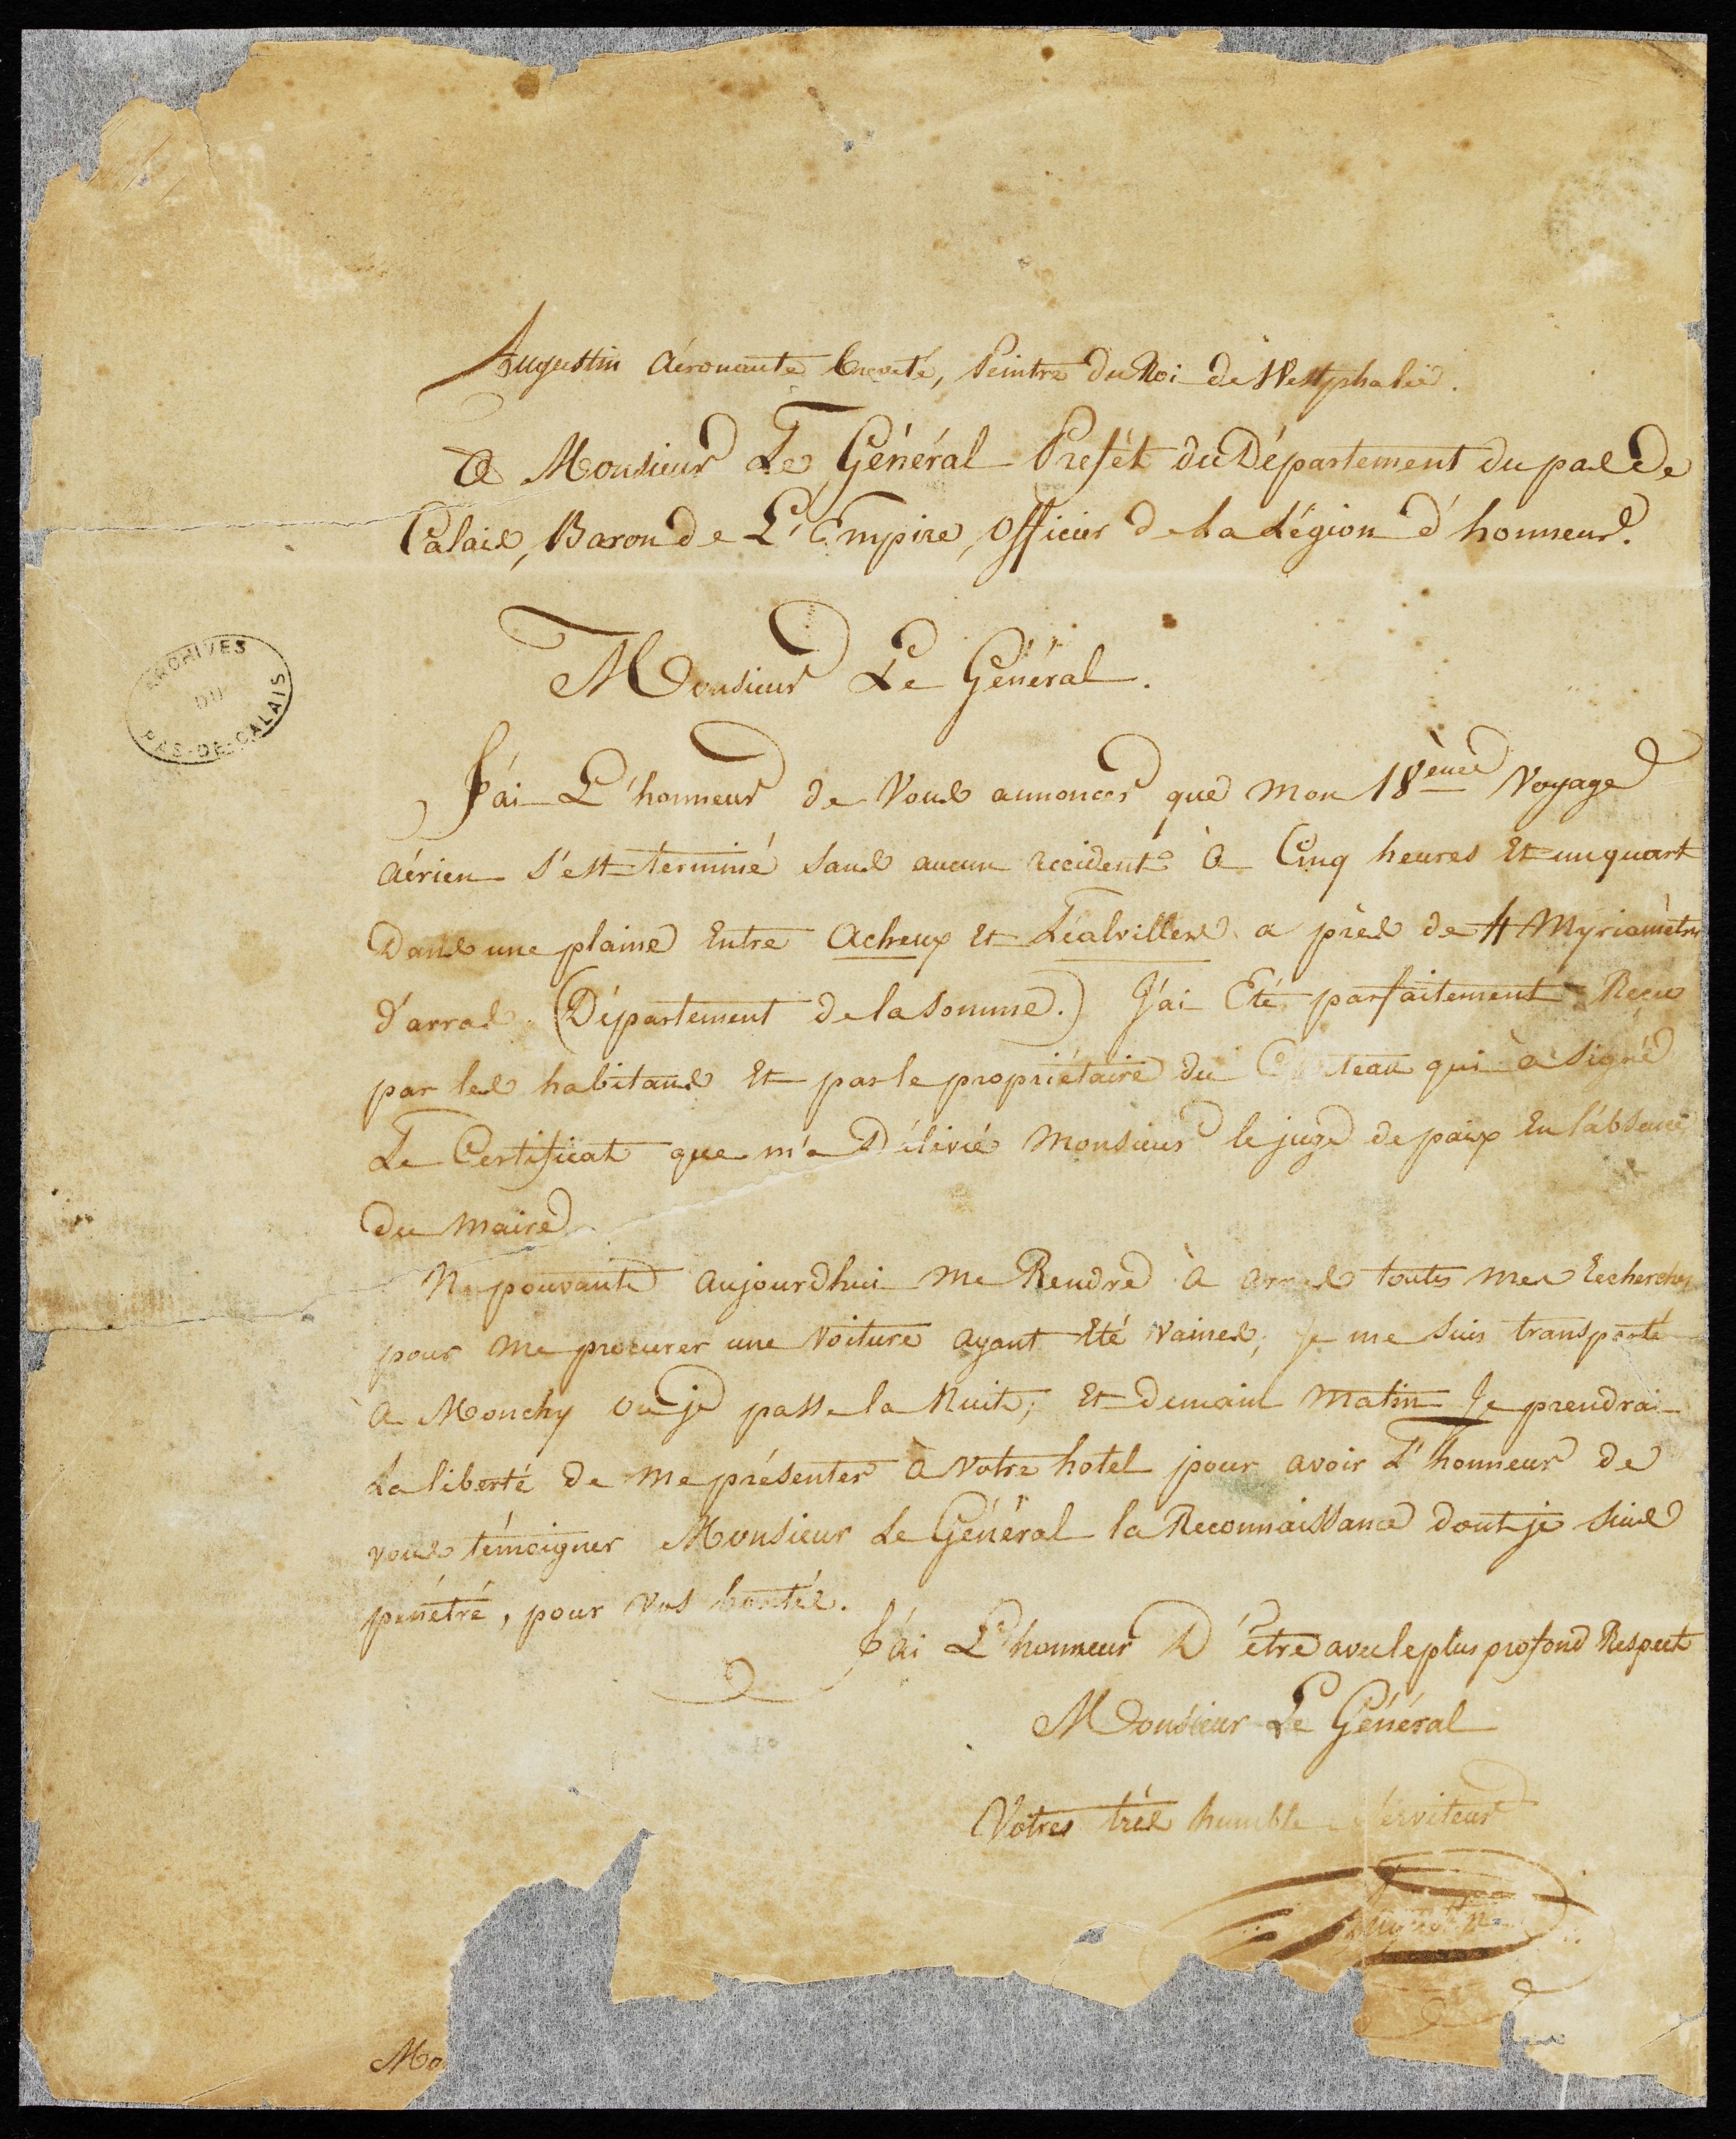 Augustin Aéronaute breveté, Peintre du Roi de Westphalie.
A Monsieur Le Général Préfèt du Département du pas de
Calais, Baron de L'Empire, Officier de La Légion d'honneur.
Monsieur Le Général.
ARCHIVES
DU
PAS-DE-CALAIS
J'ai L'honneur de Vous annoncer que mon 18ème Voyage
aérien s'est terminé sans aucun accident à Cinq heures Et un quart
Dans une plaine Entre Acheux Et Léalvillers a près de 4 Myriamètres
d'arras (Département de la Somme.) J'ai Eté parfaitement Reçu
par les habitans Et par le propriétaire du Château qui à signé
Le Certificat que m'a Délivré Monsieur le juge de paix En l'absence
du Maire
Ne pouvant aujourdhui me Rendre à arras toutes mes Recherches
pour me procurer une Voiture ayant Eté vaines, je me suis transporté
à Monchy ou je passe la Nuit; Et demain Matin Je prendrai
La liberté de me présenter à votre hotel pour avoir L'honneur de
vous témoigner Monsieur Le Général la Reconnaissance dont je suis
pénétré, pour vos bontés.
J'ai L'honneur D'être avec le plus profond Respect
Monsieur Le Général
Votre très humble Serviteur
Augustin
Mo